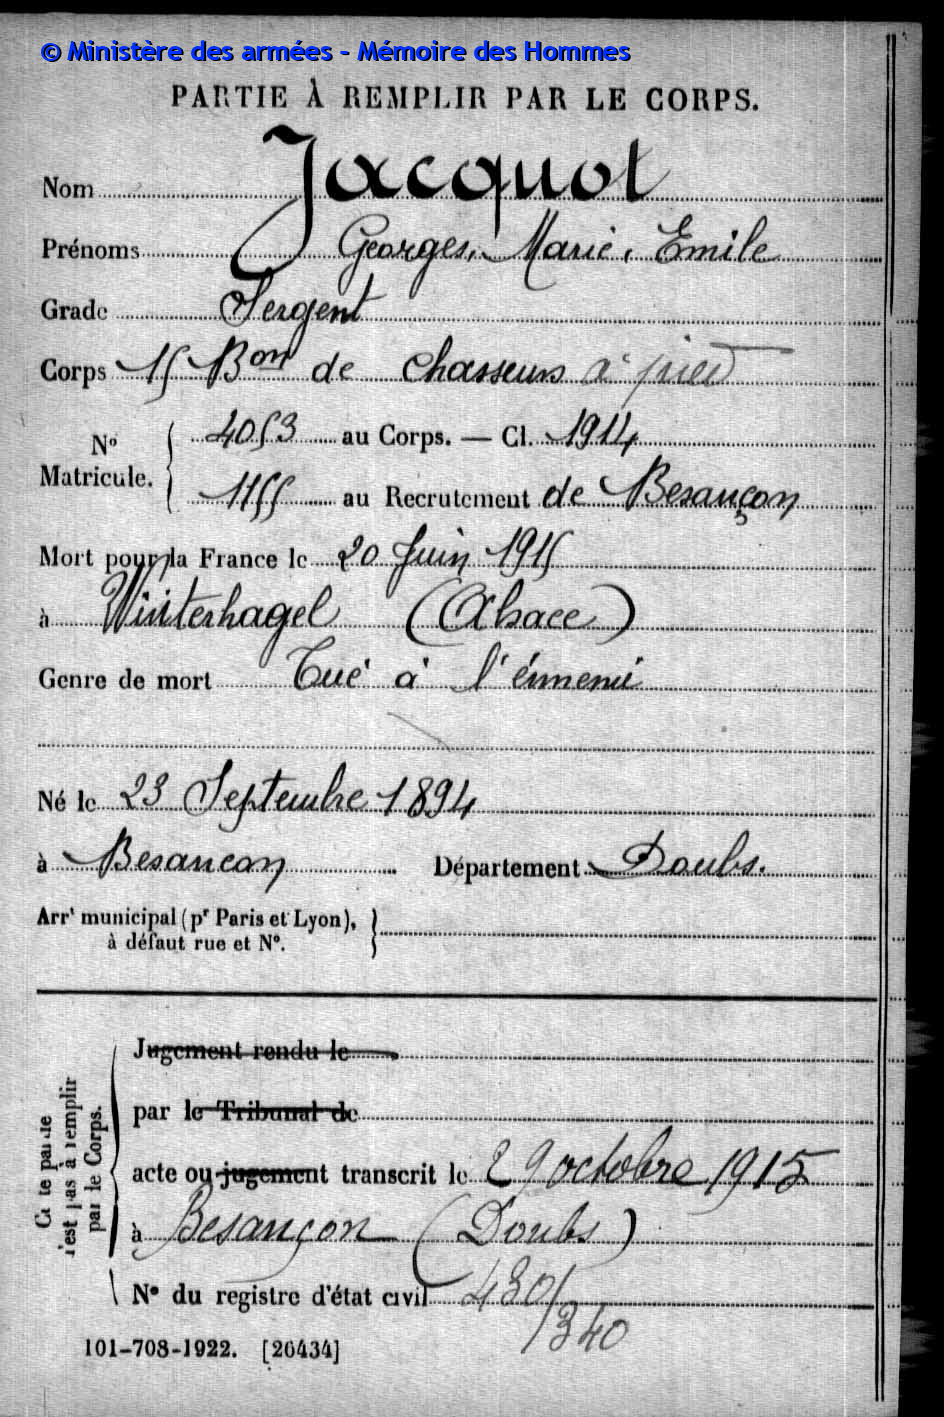 © Ministère des armées - Mémoire des Hommes
PARTIE À REMPLIR PAR LE CORPS.
Nom Jacquot
Prénoms Georges, Marie, Emile
Grade Sergent
Corps 15 Bon de chasseurs à pied
N° Matricule. 4053 au Corps. — Cl. 1914
1155 au Recrutement de Besançon
Mort pour la France le 20 Juin 1915
à Winterhagel (Alsace)
Genre de mort Tué à l'énnemi
Né le 23 Septembre 1894
à Besancon Département Doubs.
Arrt municipal (pr Paris et Lyon),
à défaut rue et N°.
Jugement rendu le
par le Tribunal de
acte ou jugement transcrit le 29 octobre 1915
à Besançon (Doubs)
N° du registre d'état civil 430/340
Cette partie
n'est pas à remplir
par le Corps.
101-708-1922. [26434]